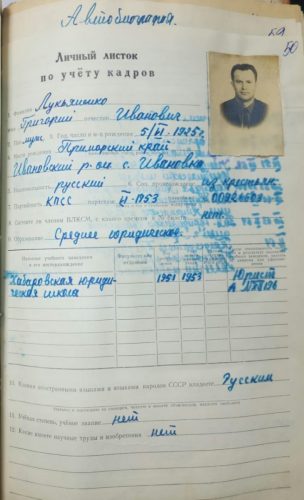 Автобиография.
50
Личный листок
по учёту кадров
1. Фамилия Лукьяненко
имя Григорий отчество Иванович
муж. 3. Год, число и м-ц рождения 5/VI 1925г.
4. Место рождения Приморский край
Ивановский р-он с. Ивановка
5. Национальность русский 6. Соц. происхождение из крестьян
7. Партийность КПСС VI-1953
8. Состоите ли членом ВЛКСМ, с какого времени и № билета нет.
9. Образование Среднее юридическое
Название учебного заведения
и его местонахождение
Хабаровская юриди-
ческая школа
1951 1953
Юрист
10. Какими иностранными языками и языками народов СССР владеете Русским
11. Учёная степень, учёное звание нет
12. Какие имеете научные труды и изобретения нет